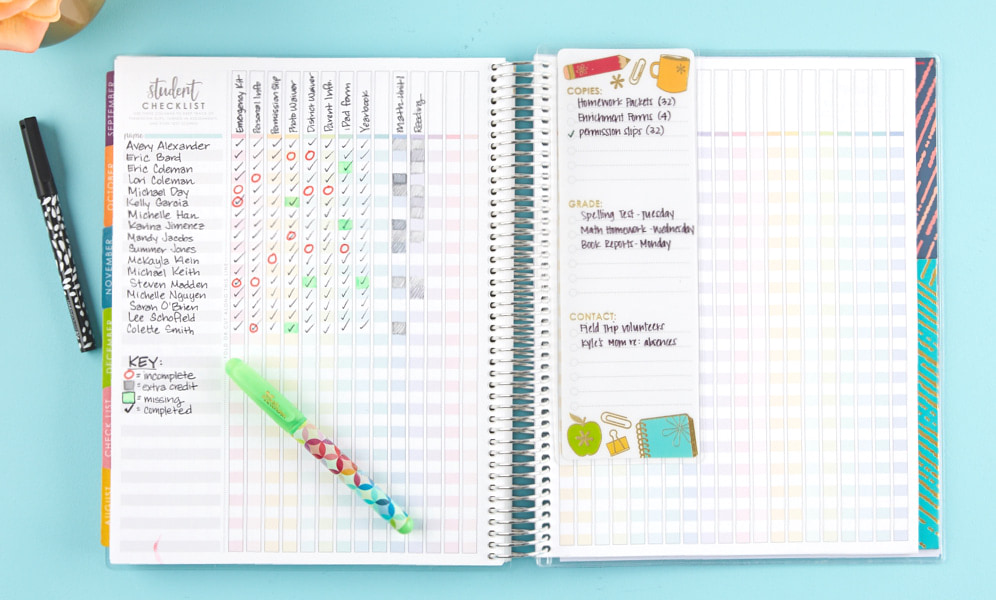 SEPTEMBER
OCTOBER
NOVEMBER
DECEMBER
CHECK LIST
AUGUST
student
CHECKLIST
name
Emergency Kit
Personal Info
Permission Slip
Photo Waiver
District Waiver
Parent Info.
iPad Form
Yearbook
Math-Unit 1
Reading
Avery Alexander
Eric Bard
Eric Coleman
Lori Coleman
Michael Day
Kelly Garcia
Michelle Han
Karina Jimenez
Mandy Jacobs
Summer Jones
McKayla Klein
Michael Keith
Steven Madden
Michelle Nguyen
Sarah O'Brien
Lee Schofield
Colette Smith
KEY:
= incomplete
= extra credit
= missing
✓ = completed
COPIES:
Homework Packets (32)
Enrichment Forms (4)
✓ permission slips (32)
GRADE:
Spelling Test - Tuesday
Math Homework - Wednesday
Book Reports - Monday
CONTACT:
Field Trip volunteers
Kyle's Mom re: absences